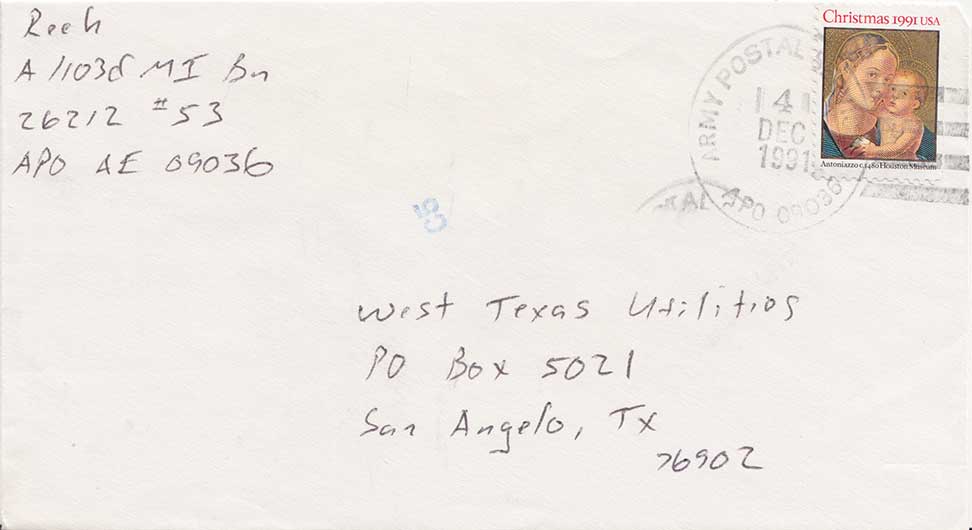 Reeh
A /103d MI Bn
26212 #53
APO AE 09036
Christmas 1991 USA
Antoniazzo c.1480 Houston Museum
ARMY POSTAL
4
DEC
1991
APO 09036
TAL
West Texas Utilities
PO Box 5021
San Angelo, Tx
76902